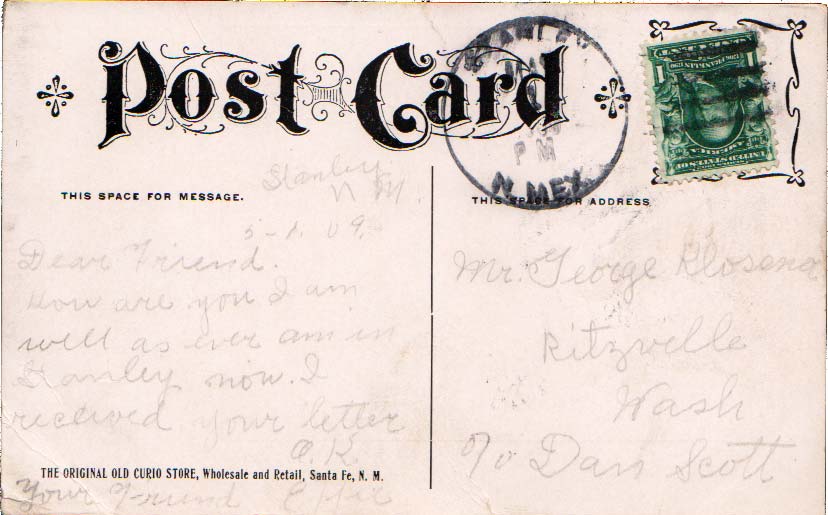 Post Card
STANLEY
P M
N. MEX.
THIS SPACE FOR MESSAGE.
THIS SPACE FOR ADDRESS
1
UNITED STATES OF AMERICA
Stanley
N M.
5-1. 09.
Dear Friend.
How are you I am
well as ever am in
Stanley now. I
received your letter
O.K.
Your Friend Effie
THE ORIGINAL OLD CURIO STORE, Wholesale and Retail, Santa Fe, N. M.
Mr. George Klosena
Ritzville
Wash
c/o Dan Scott